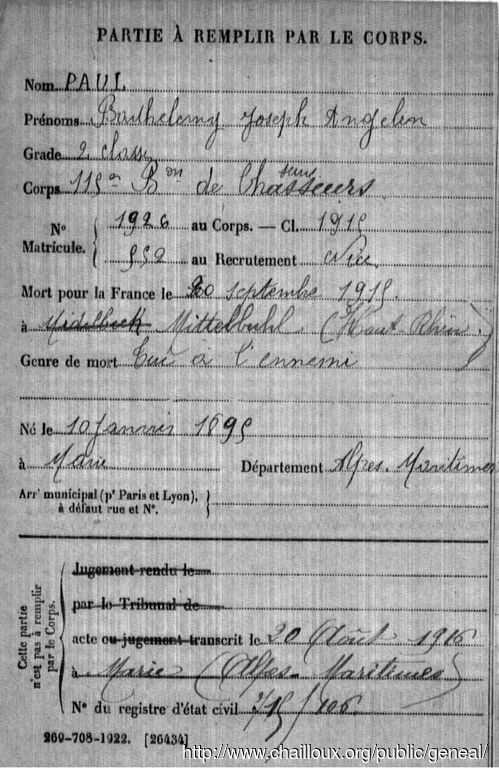 PARTIE À REMPLIR PAR LE CORPS.
Nom PAUL
Prénoms Barthelemy Joseph Angelin
Grade 2 classe
Corps 115e Bon de Chasseurs
N° Matricule. { 1926 au Corps. — Cl. 1915
552 au Recrutement Nice
Mort pour la France le 20 septembre 1915.
à Midelbeck Mittelbuhl. (Haut Rhin)
Genre de mort Tué à l'ennemi
Né le 10 Janvier 1895
à Marie Département Alpes Maritimes
Arrt municipal (pr Paris et Lyon),
à défaut rue et N°. }
Cette partie n'est pas à remplir par le Corps.
Jugement rendu le
par le Tribunal de
acte ou jugement transcrit le 20 Août 1916
à Marie (Alpes-Maritimes)
N° du registre d'état civil / 106
269-708-1922. [26434]
http://www.chailloux.org/public/geneal/